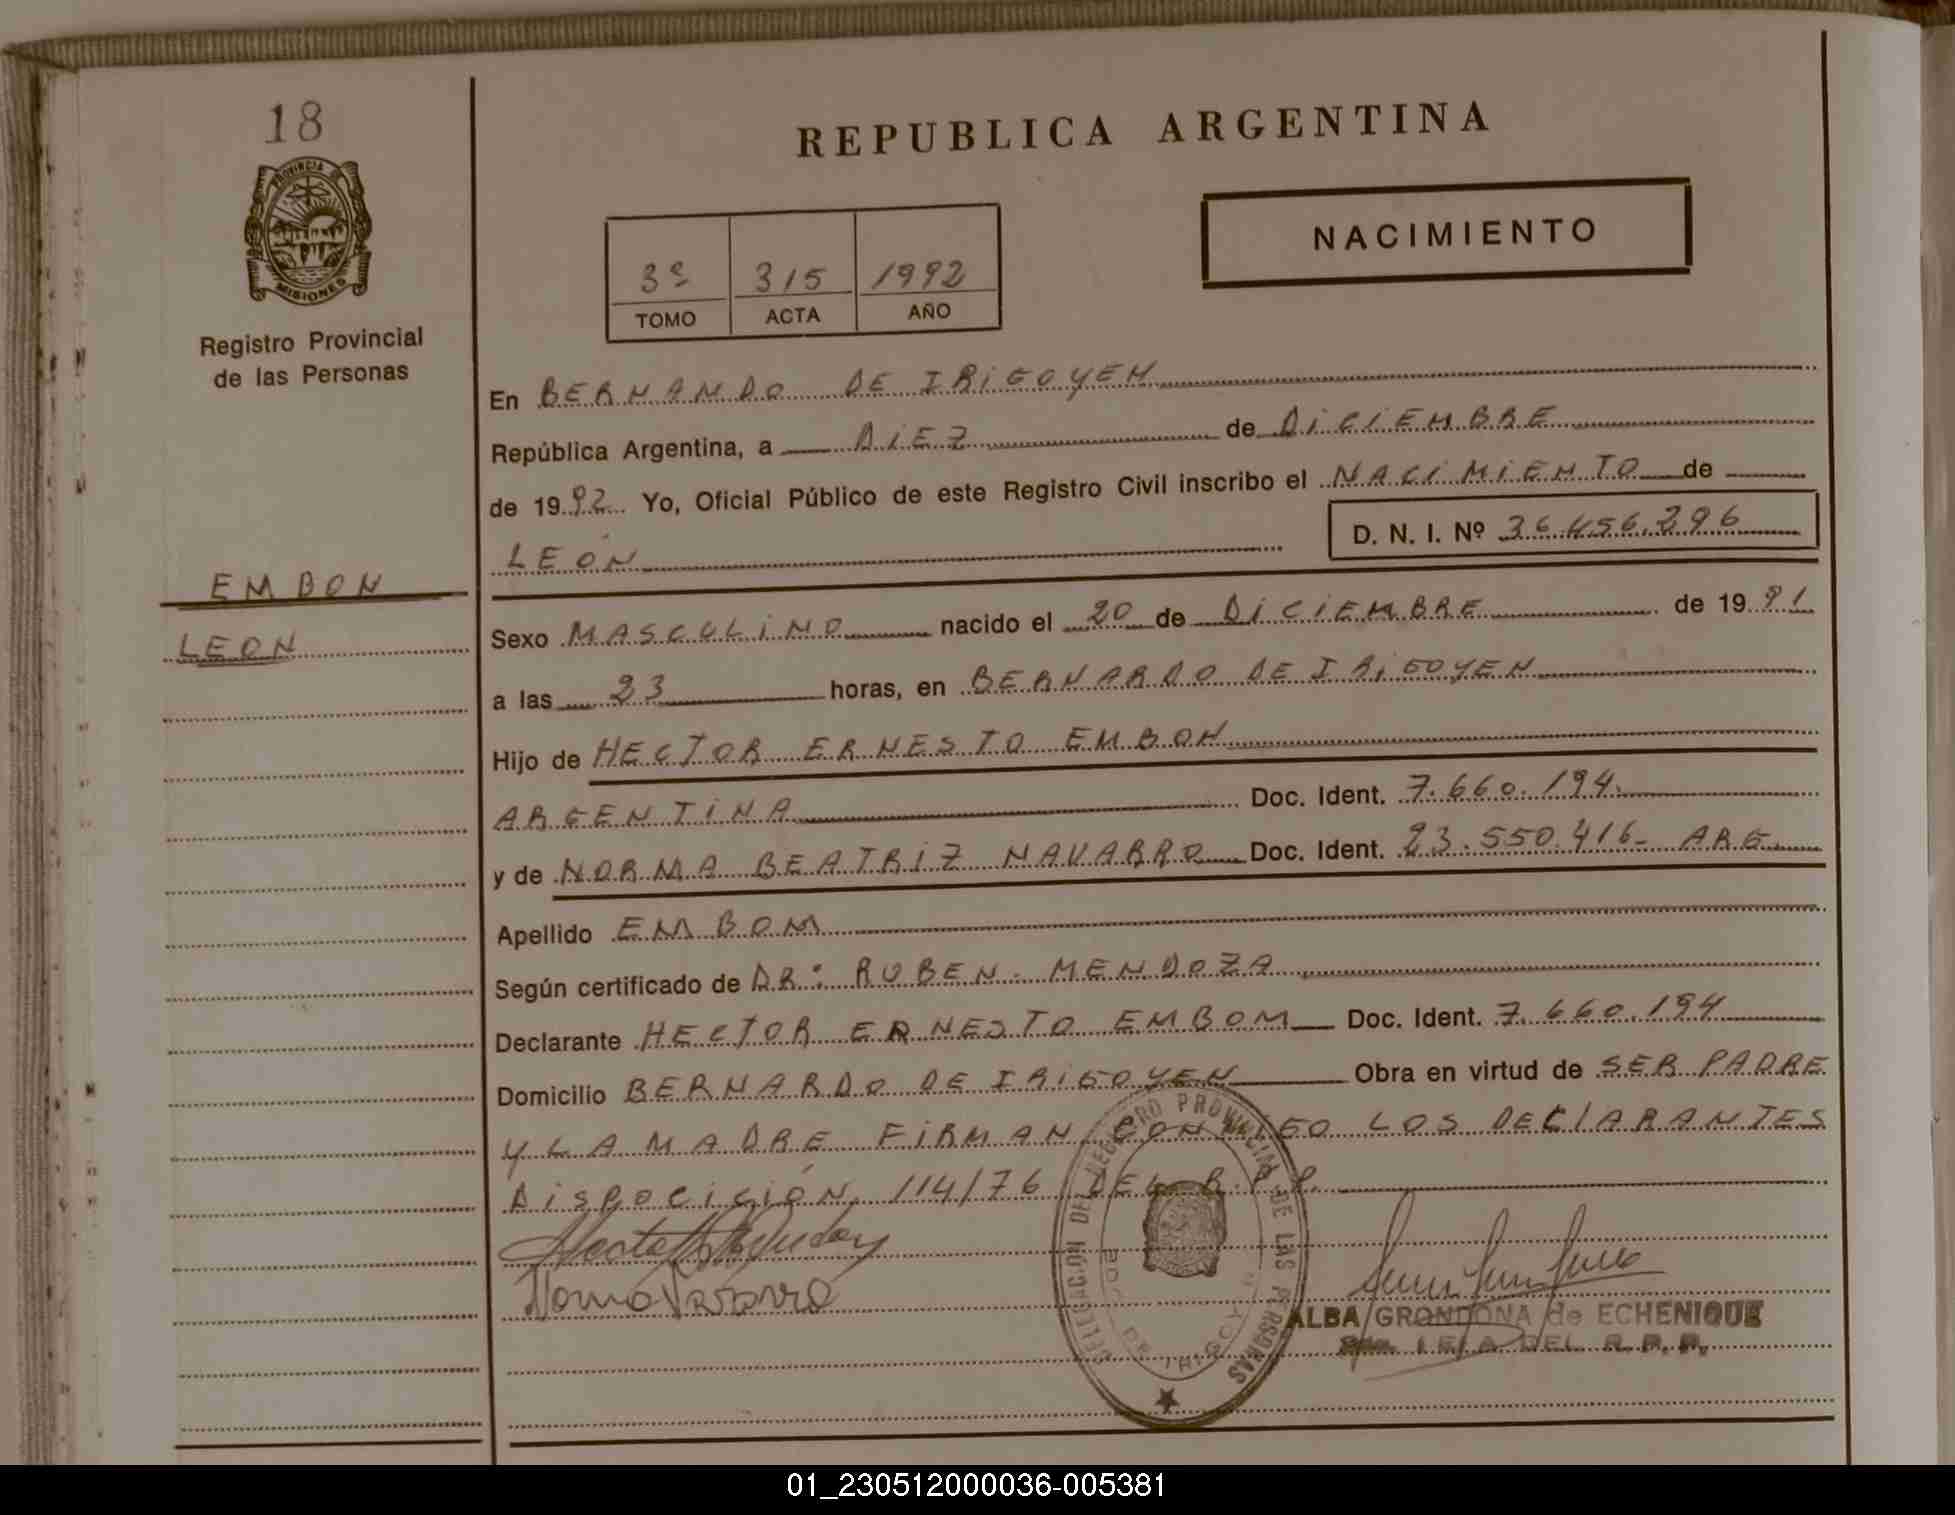 18
PROVINCIA
MISIONES
Registro Provincial
de las Personas
EMBON
LEON
REPUBLICA ARGENTINA
NACIMIENTO
3º 315 1992
TOMO ACTA AÑO
En BERNANDO DE IRIGOYEN
República Argentina, a DIEZ de DICIEMBRE
de 1992 Yo, Oficial Público de este Registro Civil inscribo el NACIMIENTO de
LEÓN D. N. I. Nº 36.456.296
Sexo MASCULINO nacido el 20 de DICIEMBRE de 1991
a las 23 horas, en BERNARDO DE IRIGOYEN
Hijo de HECTOR ERNESTO EMBON
ARGENTINA Doc. Ident. 7.660.194.
y de NORMA BEATRIZ NAVARRO Doc. Ident. 23.550.416- ARG.
Apellido EMBOM
Según certificado de DR: RUBEN. MENDOZA
Declarante HECTOR ERNESTO EMBOM Doc. Ident. 7.660.194
Domicilio BERNARDO DE IRIGOYEN Obra en virtud de SER PADRE
Y LA MADRE FIRMAN CONMIGO LOS DEClARANTES
DISPOCICIÓN. 114/76 DEL R.P.P.
Norma Navarro
DELEGACION DEL REGISTRO PROVINCIAL DE LAS PERSONAS
BDO. DE IRIGOYEN
ALBA GRONDONA de ECHENIQUE
DEL R.P.P.
01_230512000036-005381